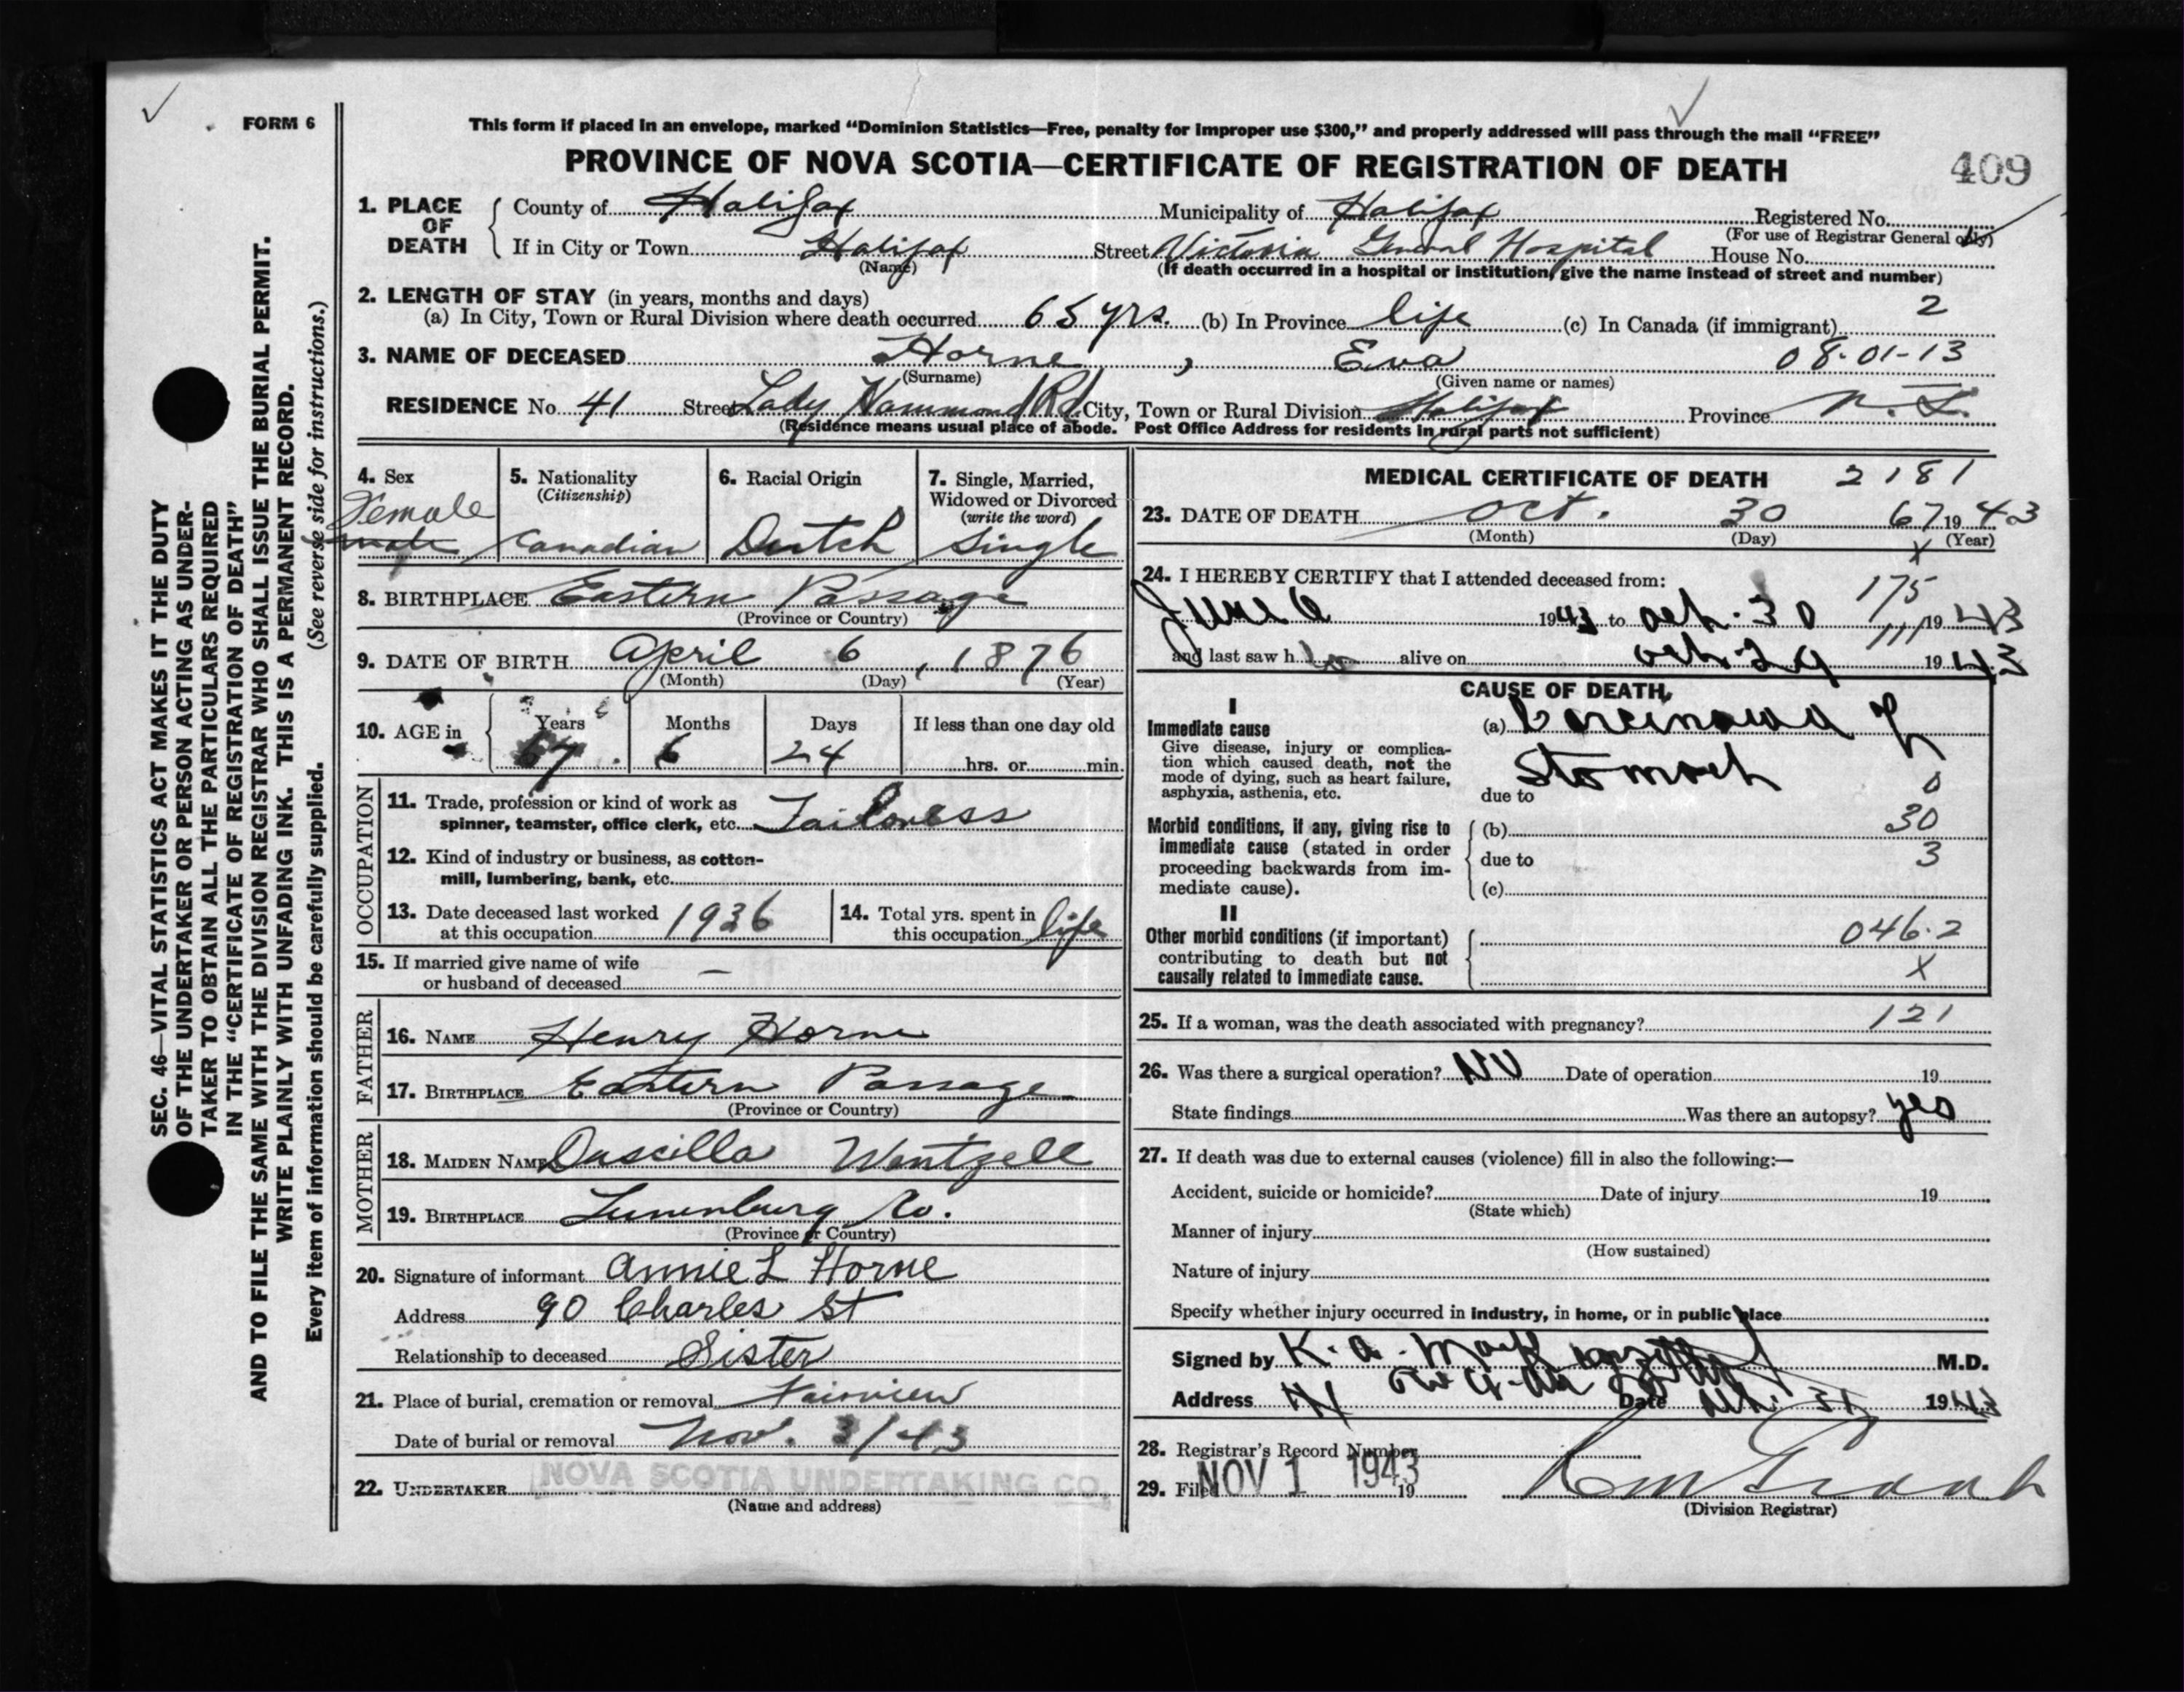 FORM 6
This form if placed in an envelope, marked “Dominion Statistics—Free, penalty for improper use $300,” and properly addressed will pass through the mail “FREE”
PROVINCE OF NOVA SCOTIA—CERTIFICATE OF REGISTRATION OF DEATH
409
1. PLACE OF DEATH
County of Halifax Municipality of Halifax Registered No.
(For use of Registrar General only)
If in City or Town Halifax Street Victoria General Hospital House No.
(Name) (If death occurred in a hospital or institution, give the name instead of street and number)
2. LENGTH OF STAY (in years, months and days)
(a) In City, Town or Rural Division where death occurred 65 yrs. (b) In Province life (c) In Canada (if immigrant) 2
3. NAME OF DECEASED Horne, Eva 08-01-13
(Surname) (Given name or names)
RESIDENCE No. 41 Street Lady Hammond Rd City, Town or Rural Division Halifax Province N.S.
(Residence means usual place of abode. Post Office Address for residents in rural parts not sufficient)
4. Sex
Female
male
5. Nationality
(Citizenship)
Canadian
6. Racial Origin
Dutch
7. Single, Married, Widowed or Divorced
(write the word)
Single
8. BIRTHPLACE Eastern Passage
(Province or Country)
9. DATE OF BIRTH April 6, 1876
(Month) (Day) (Year)
10. AGE in Years Months Days If less than one day old
67 6 24 hrs. or min.
OCCUPATION
11. Trade, profession or kind of work as
spinner, teamster, office clerk, etc. Tailoress
12. Kind of industry or business, as cotton-
mill, lumbering, bank, etc.
13. Date deceased last worked
at this occupation 1936
14. Total yrs. spent in
this occupation life
15. If married give name of wife
or husband of deceased —
FATHER
16. NAME Henry Horne
17. BIRTHPLACE Eastern Passage
(Province or Country)
MOTHER
18. MAIDEN NAME Wentzell
19. BIRTHPLACE Lunenburg Co.
(Province or Country)
20. Signature of informant Annie L Horne
Address 90 Charles St
Relationship to deceased Sister
21. Place of burial, cremation or removal Fairview
Date of burial or removal Nov. 3/43
22. UNDERTAKER NOVA SCOTIA UNDERTAKING CO.
(Name and address)
MEDICAL CERTIFICATE OF DEATH 2181
23. DATE OF DEATH Oct. 30 67 1943
(Month) (Day) (Year)
X
24. I HEREBY CERTIFY that I attended deceased from:
175
June 6 1943 to Oct. 30 1943
111
and last saw h alive on Oct. 29 1943
CAUSE OF DEATH
I
Immediate cause
Give disease, injury or complica-
tion which caused death, not the
mode of dying, such as heart failure,
asphyxia, asthenia, etc.
(a) Carcinoma of
Stomach
0
due to
30
Morbid conditions, if any, giving rise to
immediate cause (stated in order
proceeding backwards from im-
mediate cause).
(b)
due to 3
(c)
II
Other morbid conditions (if important)
contributing to death but not
causally related to immediate cause.
046.2
X
25. If a woman, was the death associated with pregnancy? 121
26. Was there a surgical operation? NO Date of operation 19
State findings Was there an autopsy? yes
27. If death was due to external causes (violence) fill in also the following:—
Accident, suicide or homicide? Date of injury 19
(State which)
Manner of injury
(How sustained)
Nature of injury
Specify whether injury occurred in industry, in home, or in public place
Signed by K. A. M.D.
Address Date 31 1943
28. Registrar's Record Number
29. Filed NOV 1 1943 19
(Division Registrar)
SEC. 46—VITAL STATISTICS ACT MAKES IT THE DUTY
OF THE UNDERTAKER OR PERSON ACTING AS UNDER-
TAKER TO OBTAIN ALL THE PARTICULARS REQUIRED
IN THE “CERTIFICATE OF REGISTRATION OF DEATH”
AND TO FILE THE SAME WITH THE DIVISION REGISTRAR WHO SHALL ISSUE THE BURIAL PERMIT.
WRITE PLAINLY WITH UNFADING INK. THIS IS A PERMANENT RECORD.
Every item of information should be carefully supplied. (See reverse side for instructions.)